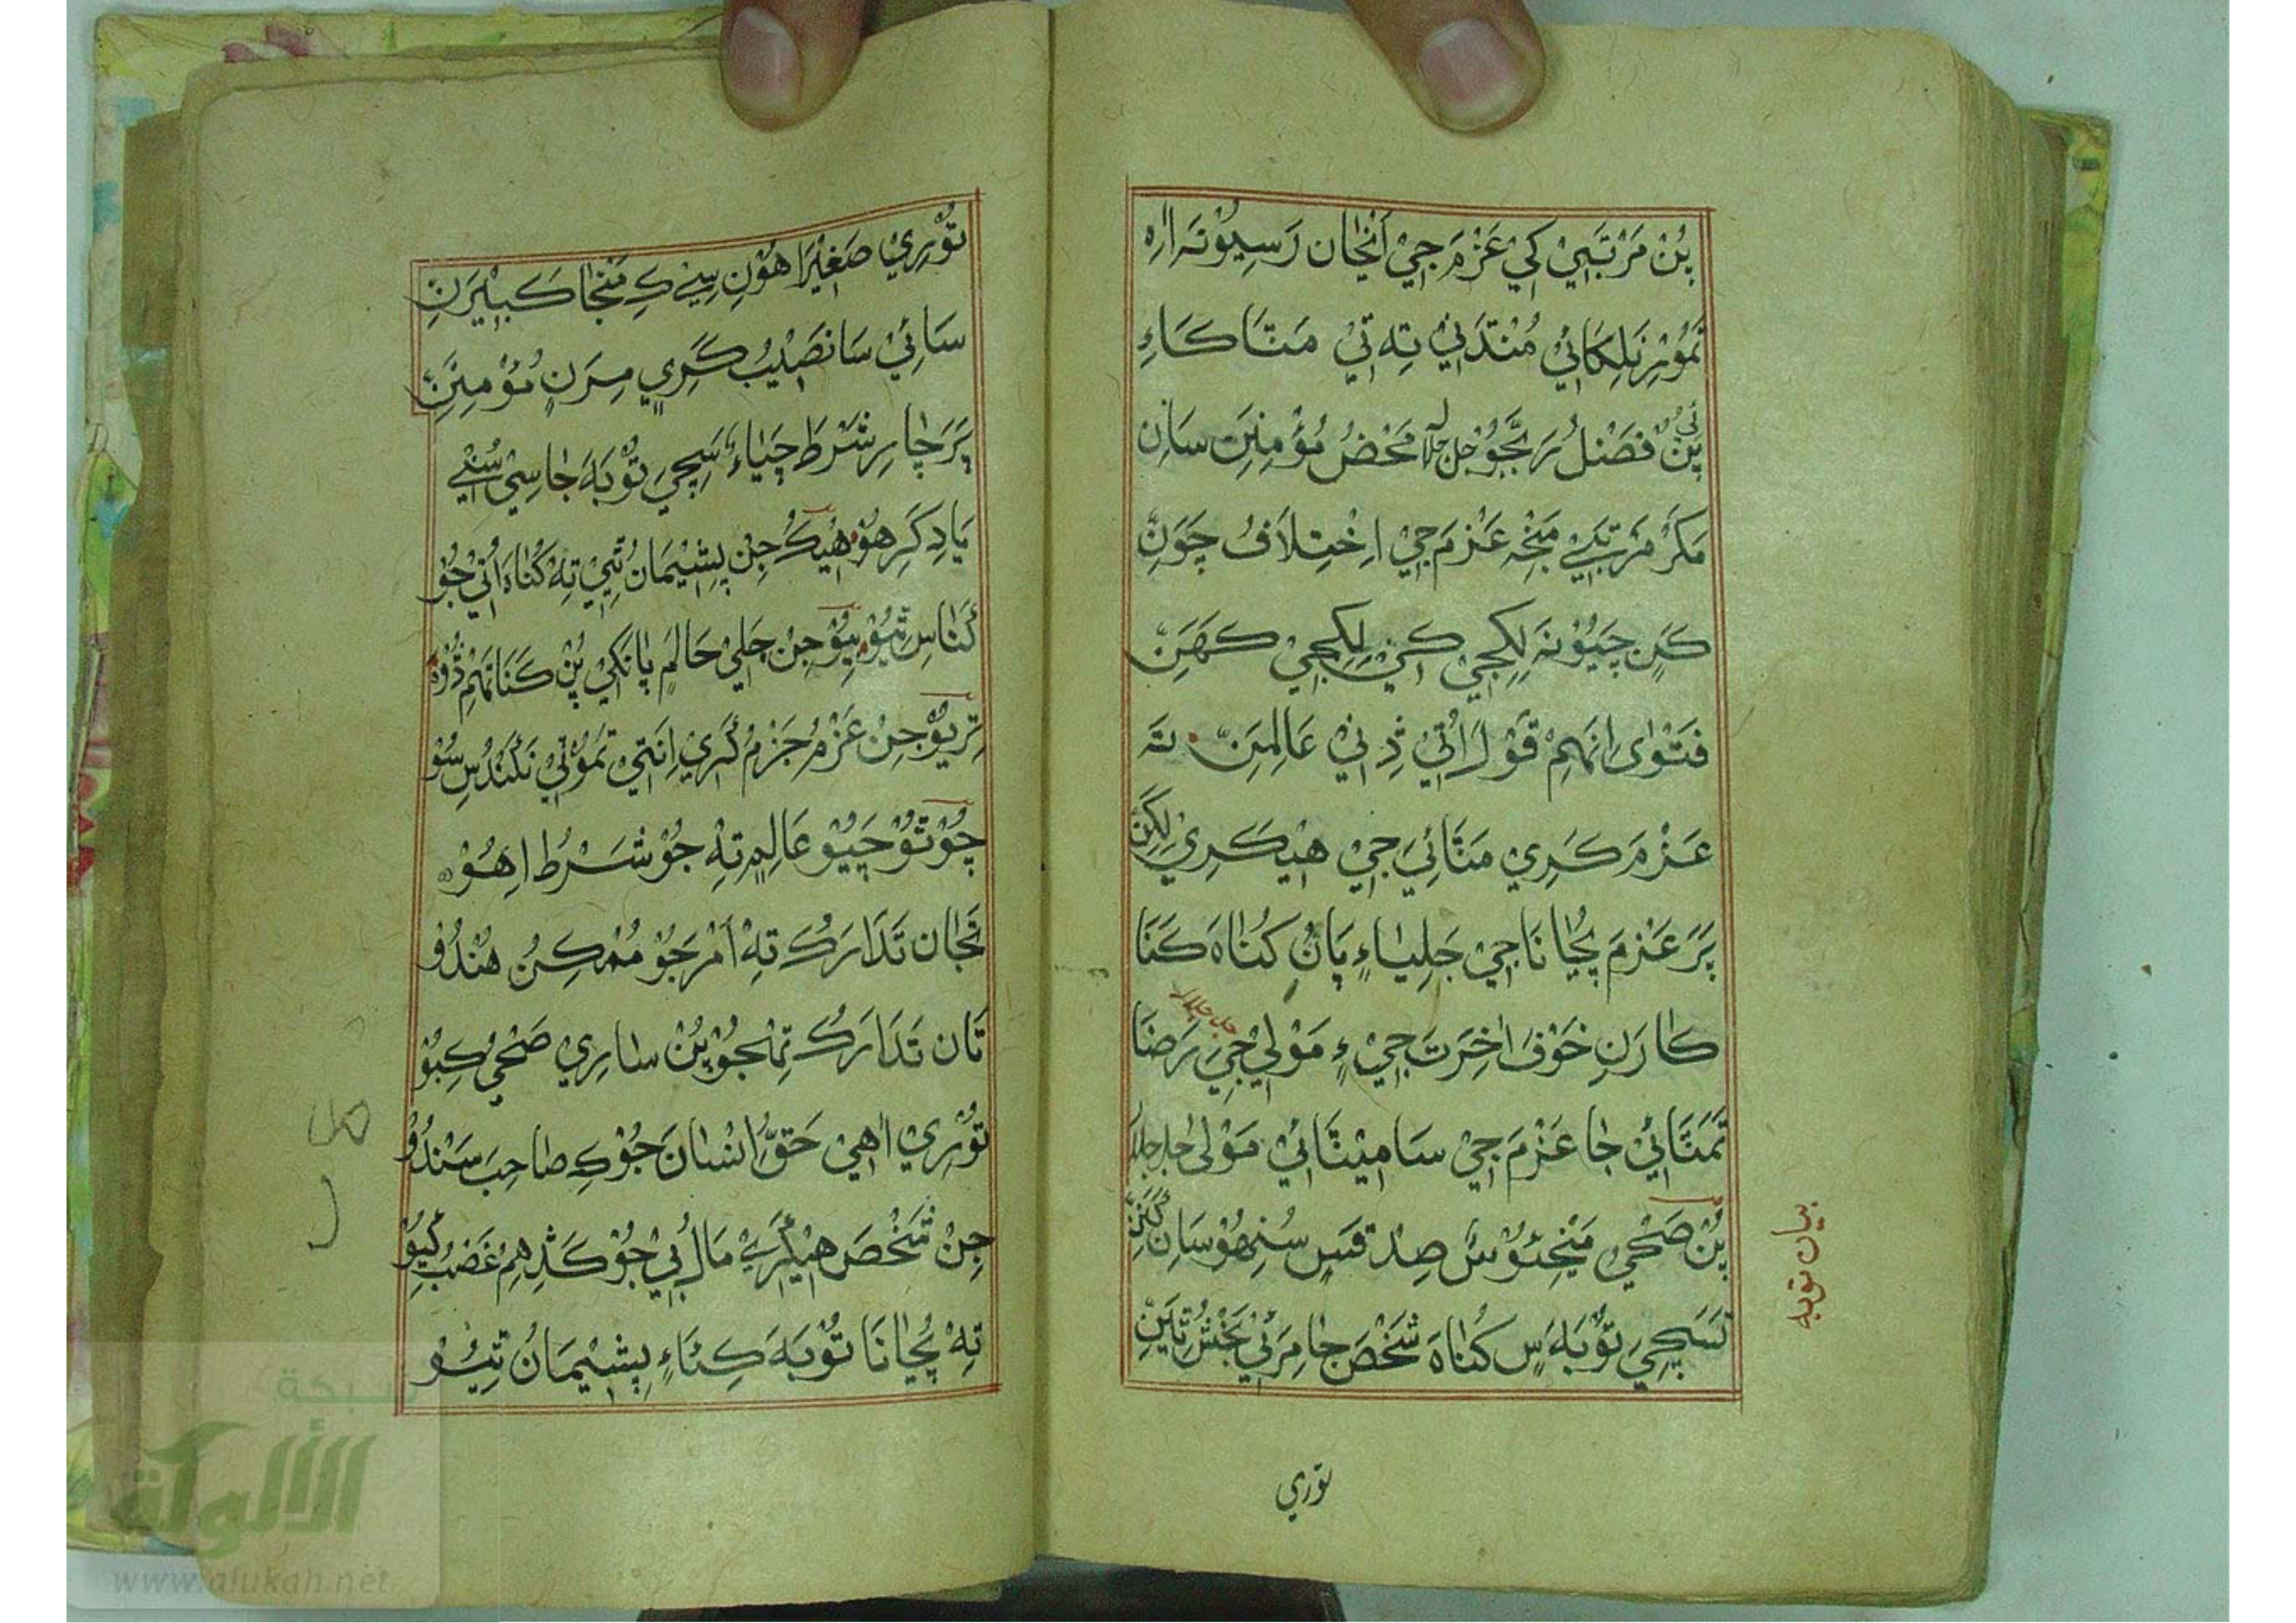 پُنْ مَرْتَبَيِيْ کِيْ عَزْمَ جِيْ اَنْجَان رَسِيُوْنَہ اِرہ
مُنْدَنِيْ تِہ تِيْ مَتَا کَاءِ
پِنْ فَضْلُ رَبَّجُوْ جل جلالہ مَحْضُ مُؤْمِنِيَنِ سَانِ
مَکَرْ مَرْتَبَيْ مَنْجِہ عَزْمَ جِيْ اِخْتِلَافُ چَوَنِّ
کَنِ چَيُوْ نَہ لِکِجِيْ کَنِيْ لِکِجِيْ کَهَنِّ
فَتْوٰى اِنَهِمْ قَوْلَ اُتِيْ ڏِنِيْ عَالِمِيَنِّ تَہ
عَزْمَ کَرِيْ مَتَّائِيَ جِيْ هِيْکَرِيْ لِکَنِّ
پَرَ عَزْمَ پُجَاٰنَا جِيْ جَلِيَاءِ پَانُ کُنَاہَ کَنَا
کَارَنِ خَوْفَ اٰخِرَتَ جِيْ ءِ مَوْلٰي جِيَ رَضَا
جل جلالہ
تَمَتَّائِيْ جَا عَزْمَ جِيْ سَا مِيْتَائِيْ مَوْلٰى جل جلالہ
پُنْ صَحِيْ مَنْجِئُوْسَ صِدْقَسِ سُنِهُوْ سَانِ کَنَنِّ
تَسَچِيَ تَوْبَہَ سٍ کُنَاہَ شَخْصَ جَا مِرَئِيْ بَخْشُ تِيَنِّ
بیان توبہ
توري
تَوْرِيْ صَغِيْرَا هُوَنِ سِيْ کِ مَنْجَا کَبِيْرَنِّ
سَائِيْ سَا نَصِيْبُ کَرِيٍ مِرَنِ مُؤْمِنَنِّ
پَرَ چَارِ شَرْطَ چَيَاءُ سَچِيَ تَوْبَہَ جَا سِيْ سُنِيْ
يَادِ کَرِ هُوْ هِيْکُ جِنْ پِشِيْمَانُ تِيْ تِہ کُنَاہَ اُنِيْ جُوْ
کَنَاسِ تِيُوْ ٻِيُوْ جِنْ جَلِيْ حَالَمِ پَانَکِيْ پُنْ کَنَانَهِمْ ڏُوْہ
تِرِيُوْ جِنْ عَزْمُ جَزْمُ کَرِيْ اِنَتِيْ تَمُوْنِيْ نَکَنْدُسِ سُوْ
چُوْتُوْ چَيُوْ عَالِمٍ تِہْ جُوْ شَرْطُ اِهُوْ
تَجَان تَدَارَکُ تِہْ اَمْرَجُوْ مُمْکِنُ هُنْدُوْ
تَان تَدَارَکُ تِهْجُوْ پُنْ سَارِيْ صَحِيْ کِبُوْ
تَوْرِيْ اٰهِيْ حَقُّ اِنْسَانَ جُوْ کِ صَاحِبَ سَنْدُوْ
جِنْ شَخْصَ هِيْکَرِيْ مَالُ ٻِيْ جُوْ کَڏِهِمْ غَضَبُ کِيُوْ
تِہْ پُجَاٰنَا تَوْبَہَ کِئَاءِ پِشِيْمَانُ تِيُوْ
شبكة
الألوكة
www.alukah.net